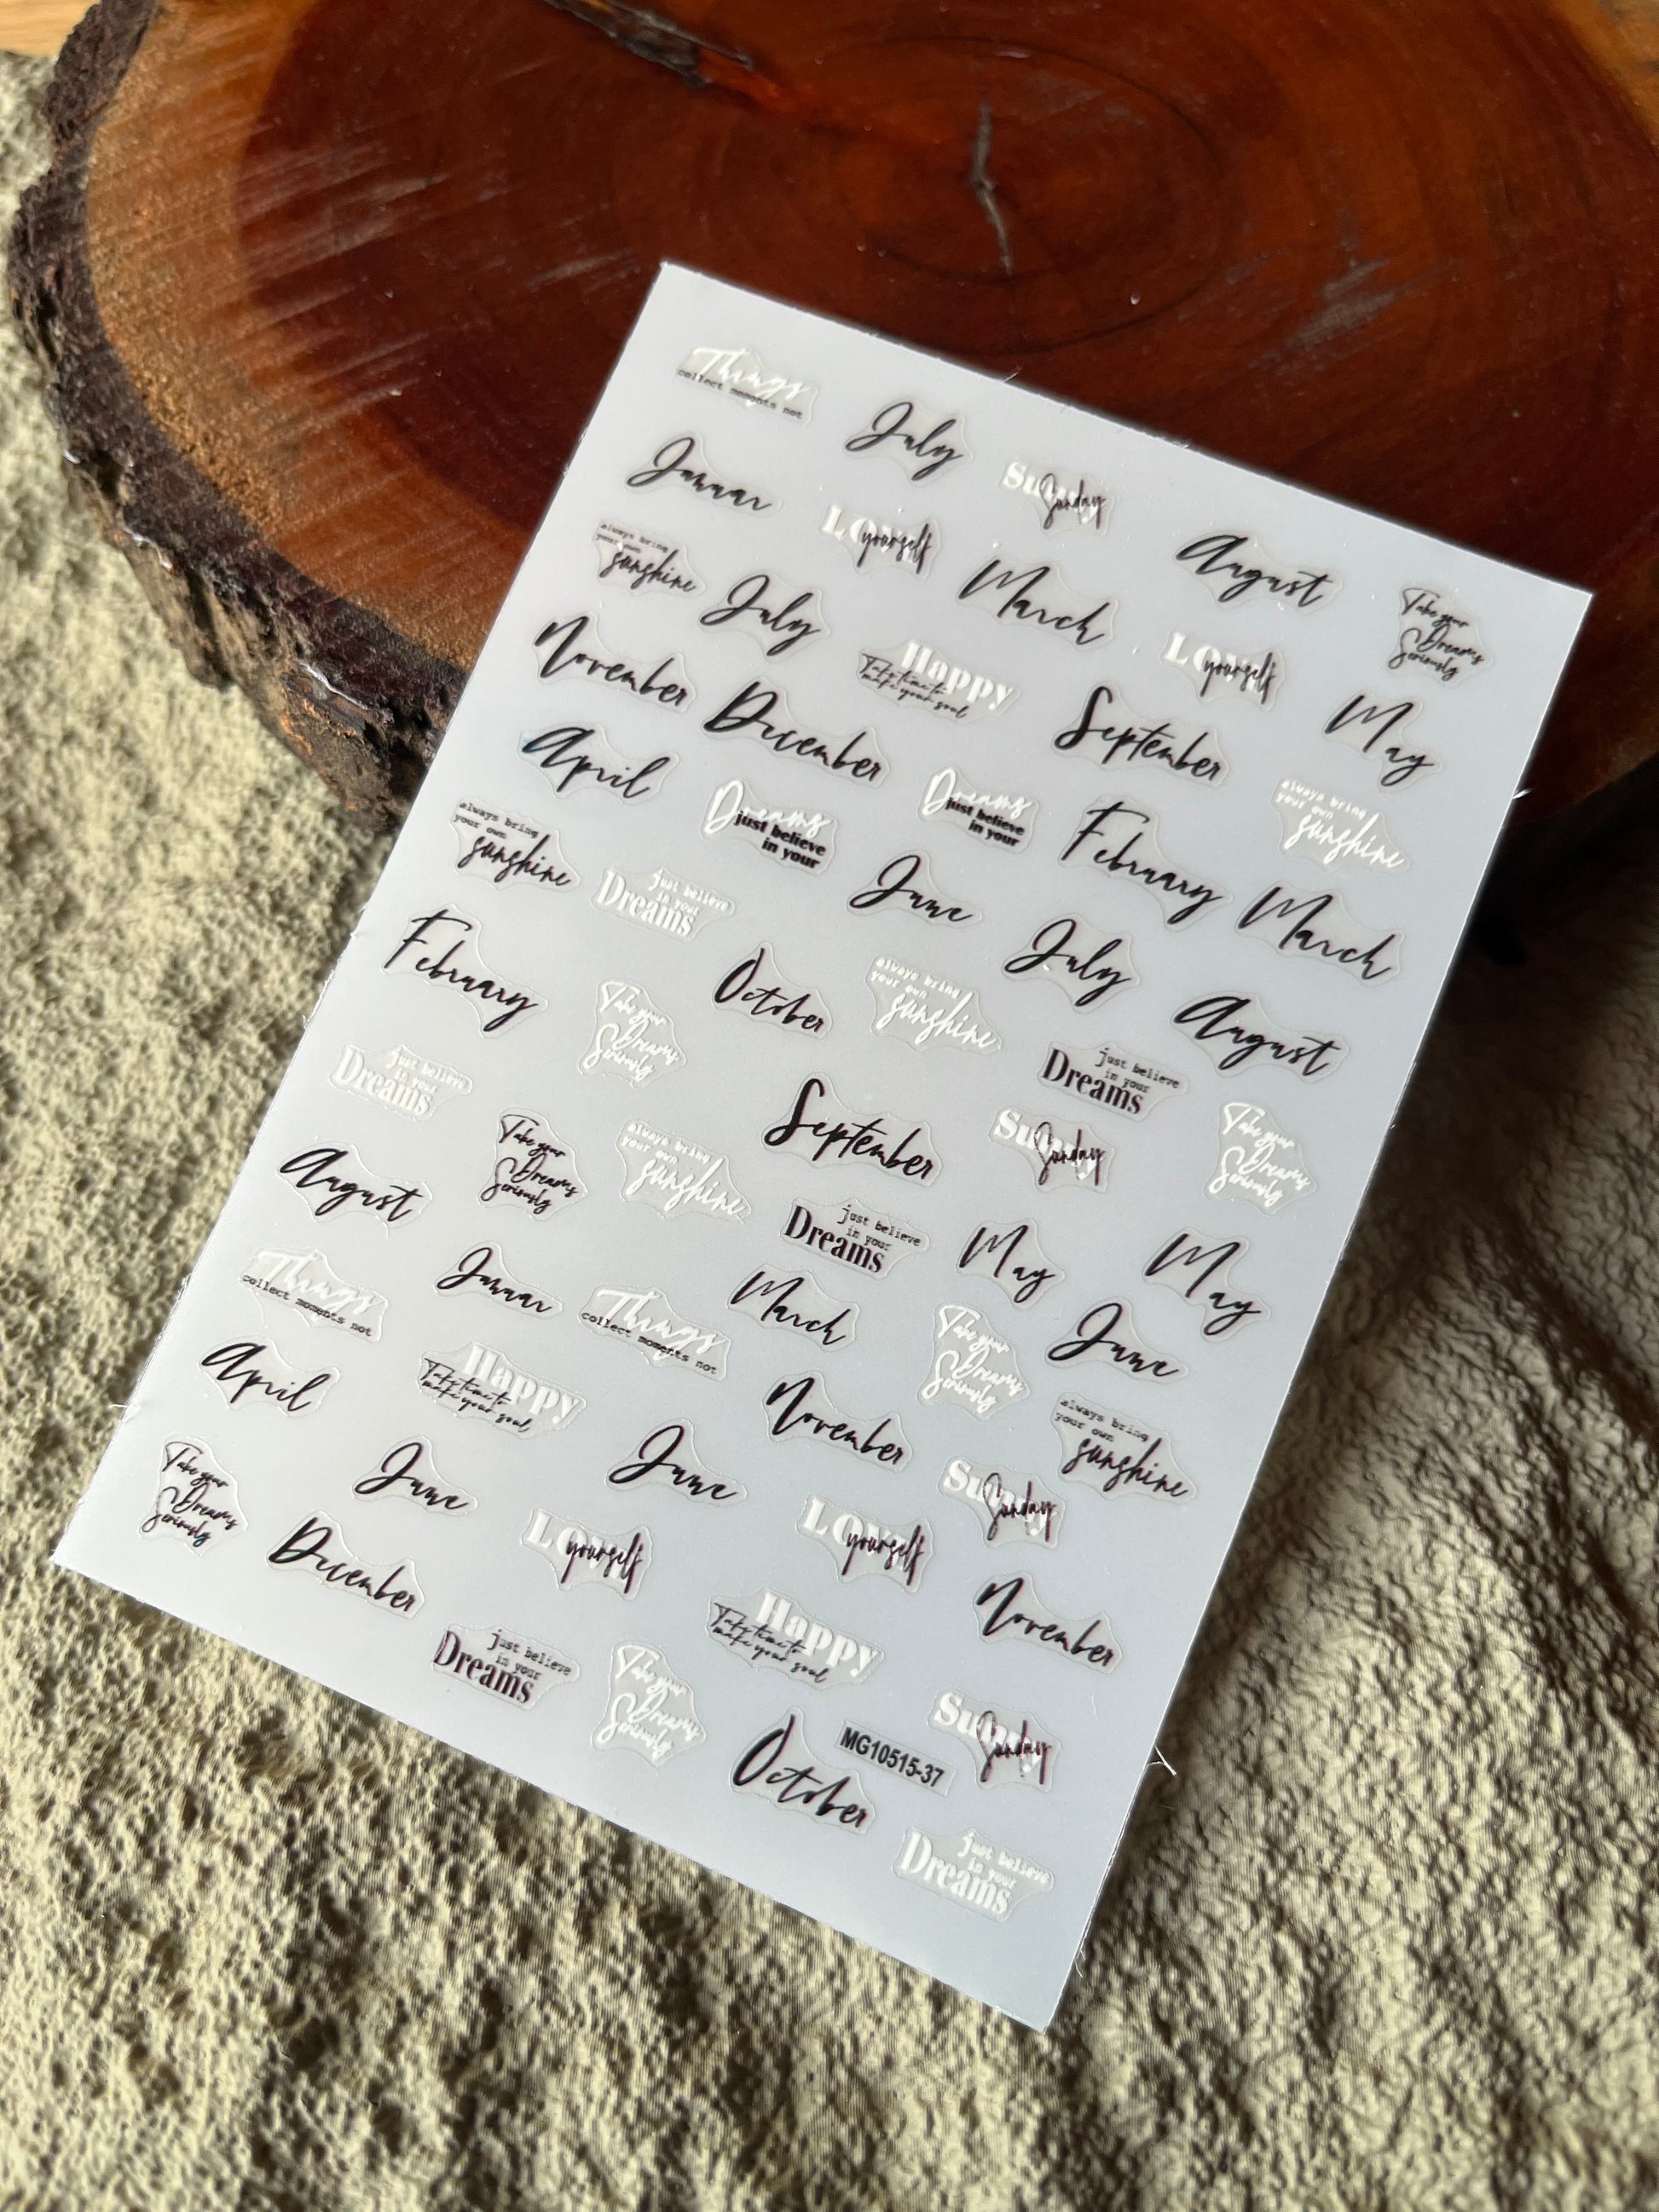 Things
collect moments not
July
Sunday
Sunday
Januar
LOVE
yourself
August
always bring
your own
sunshine
July
March
Take your
Dreams
Seriously
LOVE
yourself
November
Happy
Take time to
make your soul
December
September
May
April
Dreams
just believe
in your
Dreams
just believe
in your
February
always bring
your own
sunshine
always bring
your own
sunshine
just believe
in your
Dreams
June
July
March
February
October
always bring
your own
sunshine
August
Take your
Dreams
Seriously
just believe
in your
Dreams
just believe
in your
Dreams
September
Sunday
Sunday
Take your
Dreams
Seriously
August
Take your
Dreams
Seriously
always bring
your own
sunshine
just believe
in your
Dreams
May
May
Things
collect moments not
Januar
Things
collect moments not
March
Take your
Dreams
Seriously
June
April
Happy
Take time to
make your soul
November
always bring
your own
sunshine
Take your
Dreams
Seriously
June
June
Sunday
Sunday
December
LOVE
yourself
LOVE
yourself
November
just believe
in your
Dreams
Take your
Dreams
Seriously
Happy
Take time to
make your soul
October
MG10515-37
Sunday
Sunday
just believe
in your
Dreams